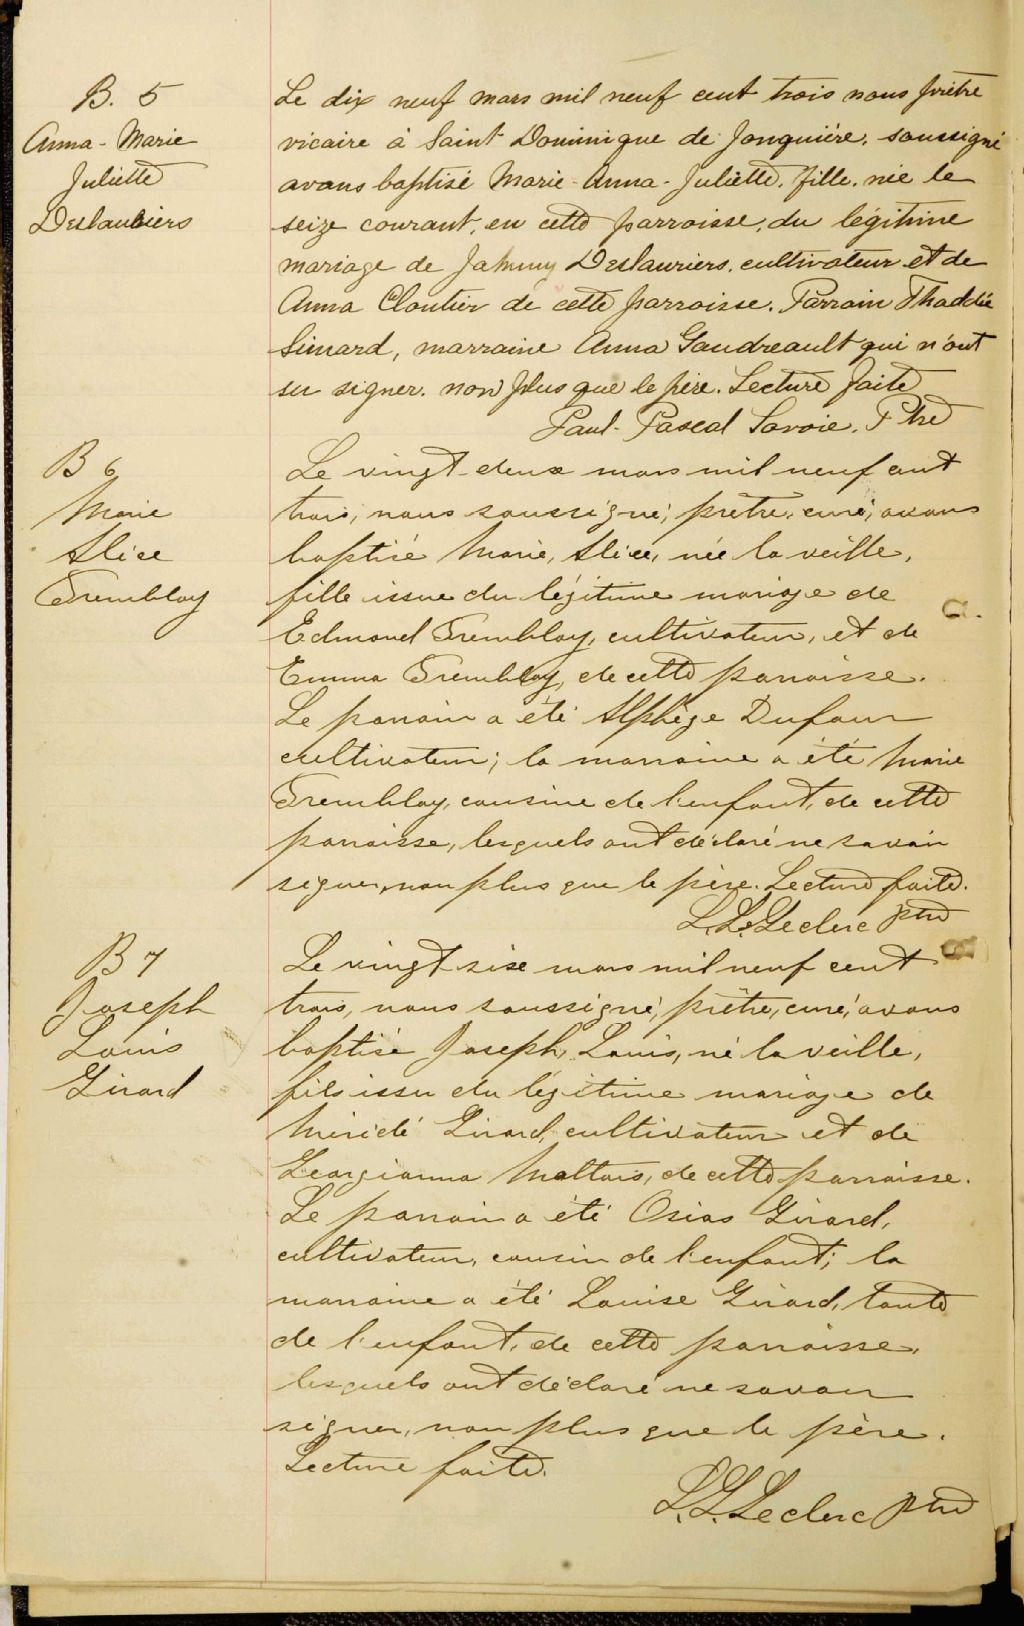 B. 5
Anna-Marie
Juliette
Deslauriers
Le dix neuf mars mil neuf cent trois nous prêtre
vicaire à Saint Dominique de Jonquière, soussigné
avons baptisé Marie-Anna-Juliette, fille, née le
seize courant, en cette parroisse, du légitime
mariage de Johnny Deslauriers, cultivateur et de
Anna Cloutier de cette parroisse. Parrain Thaddée
Simard, marraine Anna Gaudreault qui n'ont
su signer. non plus que le père. Lecture faite
Paul-Pascal Savoie. Ptre
B 6
Marie
Alice
Tremblay
Le vingt-deux mars mil neuf cent
trois, nous soussigné, prêtre, curé, avons
baptisé Marie, Alice, née la veille,
fille issue du légitime mariage de
Edmond Tremblay, cultivateur, et de
Emma Tremblay, de cette paroisse.
Le parrain a été Alphège Dufour
cultivateur; la marraine a été Marie
Tremblay, cousine de l'enfant, de cette
paroisse, lesquels ont déclaré ne savoir
signer, non plus que le père. Lecture faite.
L. L. Leclerc ptre
B 7
Joseph
Louis
Girard
Le vingt-six mars mil neuf cent
trois, nous soussigné, prêtre, curé, avons
baptisé Joseph, Louis, né la veille,
fils issu du légitime mariage de
Méridé Girard, cultivateur et de
Georgianna Maltais, de cette parroisse.
Le parrain a été Osias Girard,
cultivateur, cousin de l'enfant; la
marraine a été Louise Girard, tante
de l'enfant, de cette parroisse,
lesquels ont déclaré ne savoir
signer, non plus que le père.
Lecture faite.
L. L. Leclerc ptre